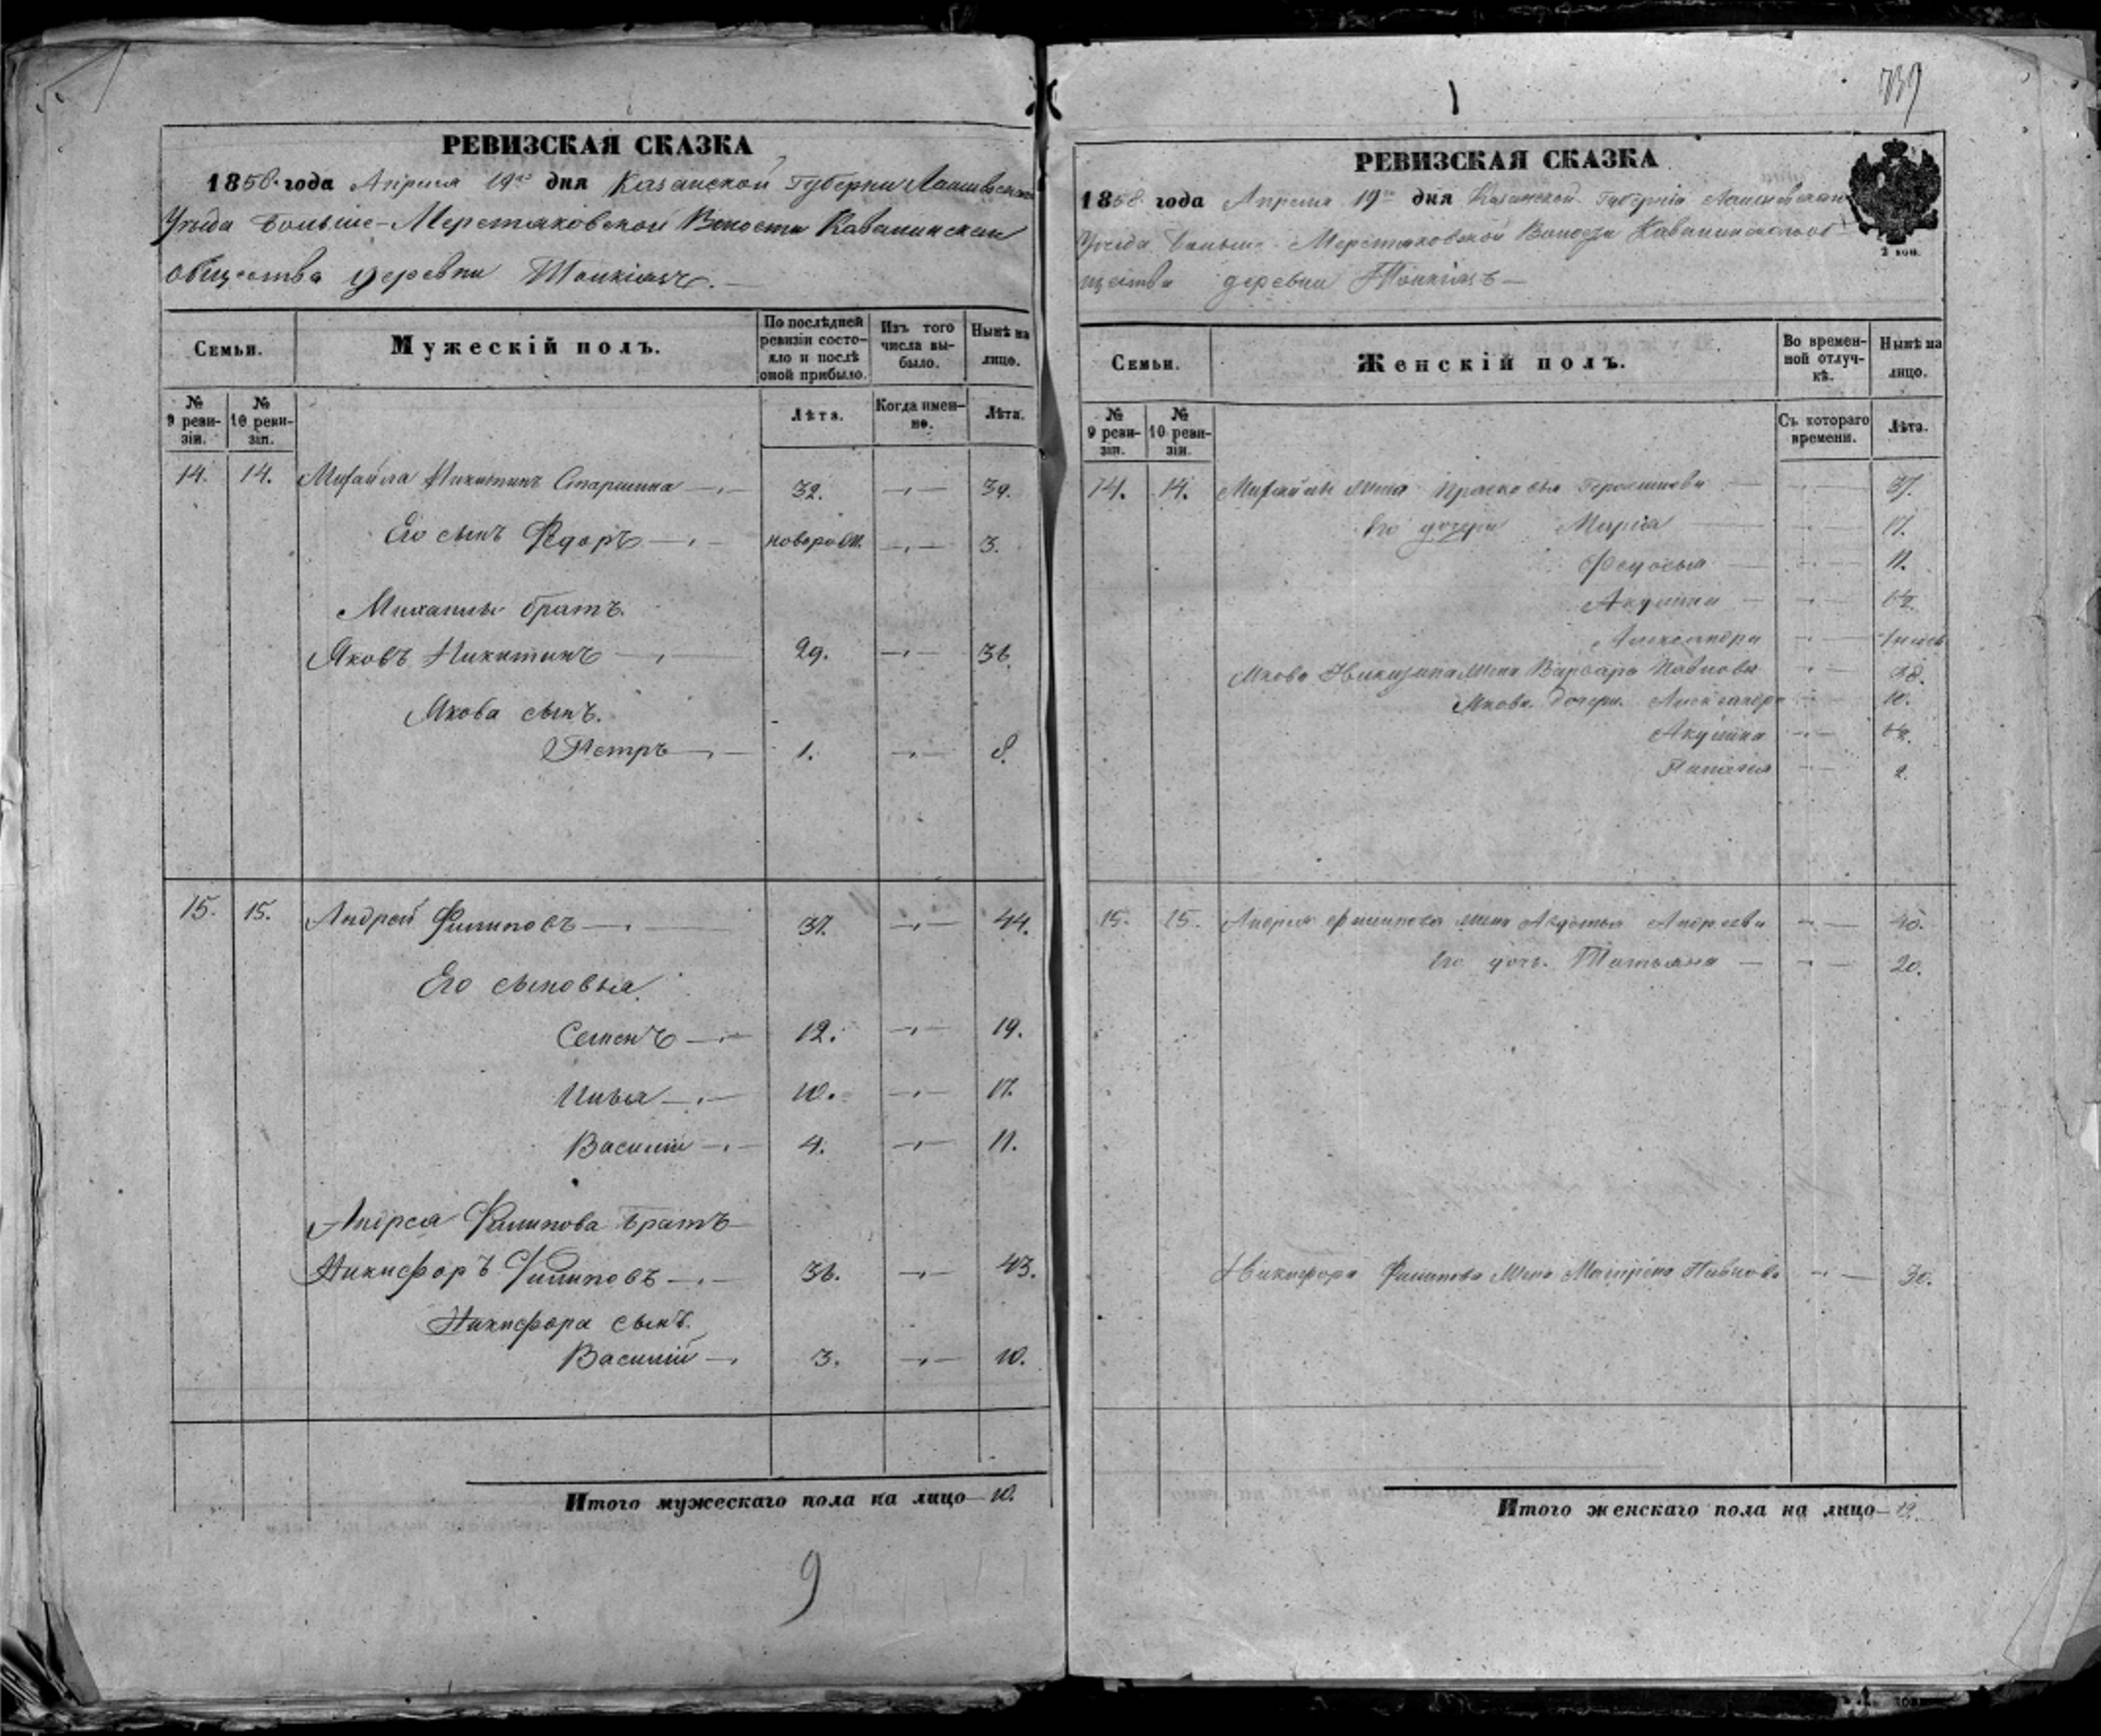 РЕВИЗСКАЯ СКАЗКА
1858 года Апреля 19го дня Казанской Губерни Лаишевской
Уезда Больше-Меретяковской Волости Кавалинскаго
общества деревни Тонкіазъ.
Семьи.
Мужескій полъ.
По послѣдней ревизіи состояло и послѣ оной прибыло.
Изъ того числа выбыло.
Нынѣ на лицо.
№ 9 ревизіи.
№ 10 ревизіи.
Лѣта.
Когда именно.
Лѣта.
14. 14. Михайла Никитинъ Старшина 32. 39.
Его сынъ Федоръ новорож. 3.
Михаилы братъ.
Яковъ Никитинъ 29. 36.
Якова сынъ.
Петръ 1. 8.
15. 15. Андрей Филиповъ 37. 44.
Его сыновья.
Семенъ 12. 19.
Илья 10. 17.
Василій 4. 11.
Андрея Филипова братъ
Никифоръ Филиповъ 36. 43.
Никифора сынъ.
Василій 3. 10.
Итого мужескаго пола на лицо 10.
9
739
РЕВИЗСКАЯ СКАЗКА
1858 года Апреля 19го дня Казанской Губерніи Лаишевскаго
Уезда Больше-Меретяковской Волости Кавалинскаго об-
щества деревни Тонкіазъ
2 коп.
Семьи.
Женскій полъ.
Во временной отлучкѣ.
Нынѣ на лицо.
№ 9 ревизіи.
№ 10 ревизіи.
Съ котораго времени.
Лѣта.
14. 14. Михайлы жена Прасковья Герасимова 37.
Его дочери Марія 17.
Федосья 11.
Акулина
Александра
Якова Никитина жена Варвара Павлова 38.
Якова дочери Александра 10.
Акулина
Пелагея 2.
15. 15. Андрея Филипова жена Авдотья Андреева 40.
Его дочь Татьяна 20.
Никифора Филипова жена Матрена Павлова 30.
Итого женскаго пола на лицо 12.